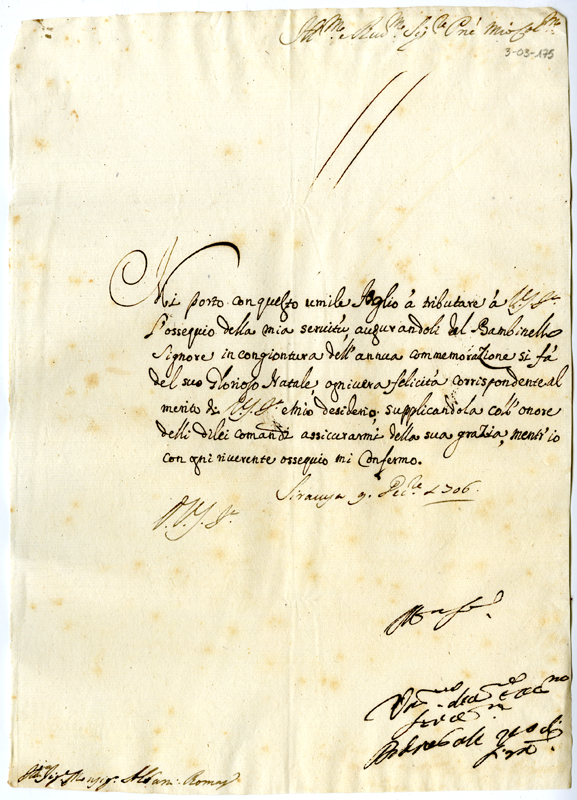 Ill.mo e Rev.mo Sig.re P.ne mio Col.mo
3-03-175
Mi porto con questo umile foglio à tributare à V.S. Ill.
l'ossequio della mia servitù, augurandoli dal Bambinello
Signore in congiontura dell'annua commemorazione si fà
del suo Glorioso Natale ogni vera felicità corrispondente al
merito di V.S. Ill. e mio desiderio, supplicandola coll'onore
delli di lei comandi assicurarmi della sua grazia, mentr'io
con ogni riverente ossequio mi confermo.
Siracusa 9. Dec.re 1706.
V.S. Ill.
Monsig.r Alban: Roma